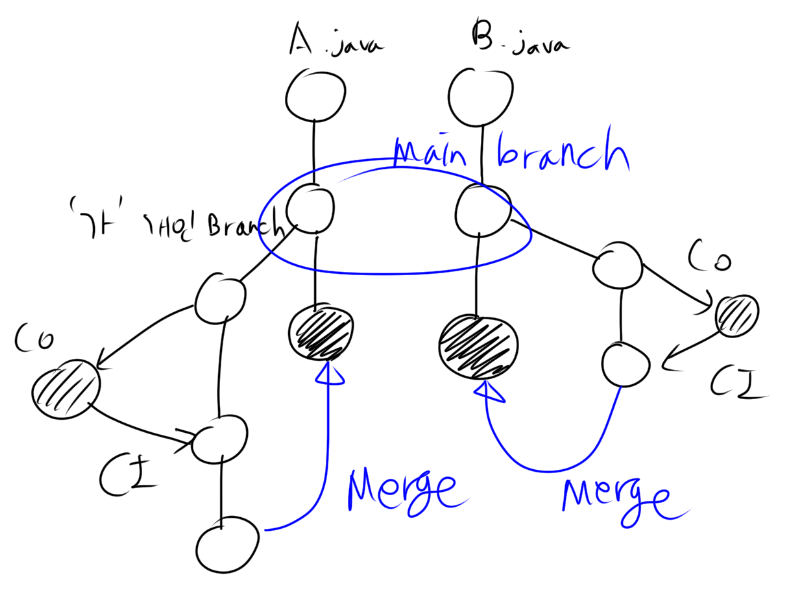 A.java
B.java
main branch
'가' 개인 Branch
Co
Co
CI
CI
Merge
Merge